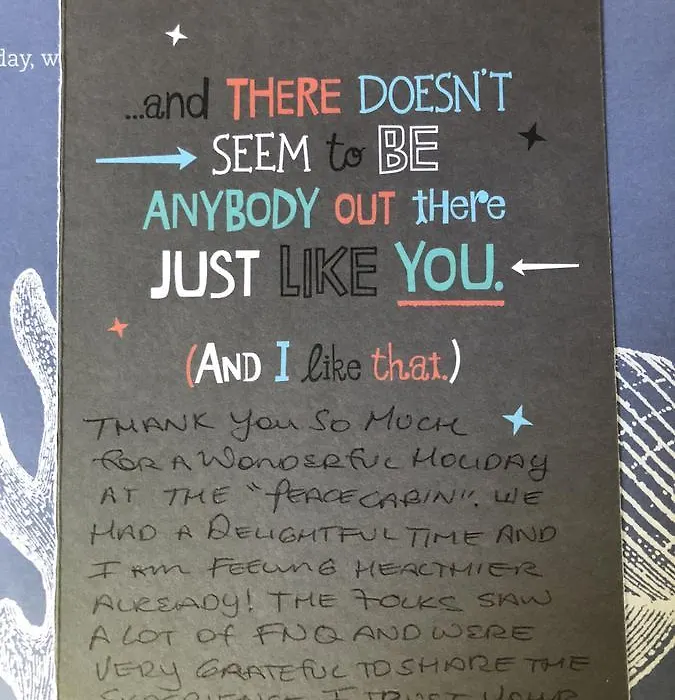 day, w
...and THERE DOESN'T
SEEM to BE
ANYBODY OUT tHere
JUST LIKE YOU.
(AND I like that.)
THANK YOU SO MUCH
FOR A WONDERFUL HOLIDAY
AT THE "PEACECABIN". WE
HAD A DELIGHTFUL TIME AND
I AM FEELING HEALTHIER
ALREADY! THE FOLKS SAW
A LOT OF FNQ AND WERE
VERY GRATEFUL TO SHARE THE
EXPERIENCE I TRUST